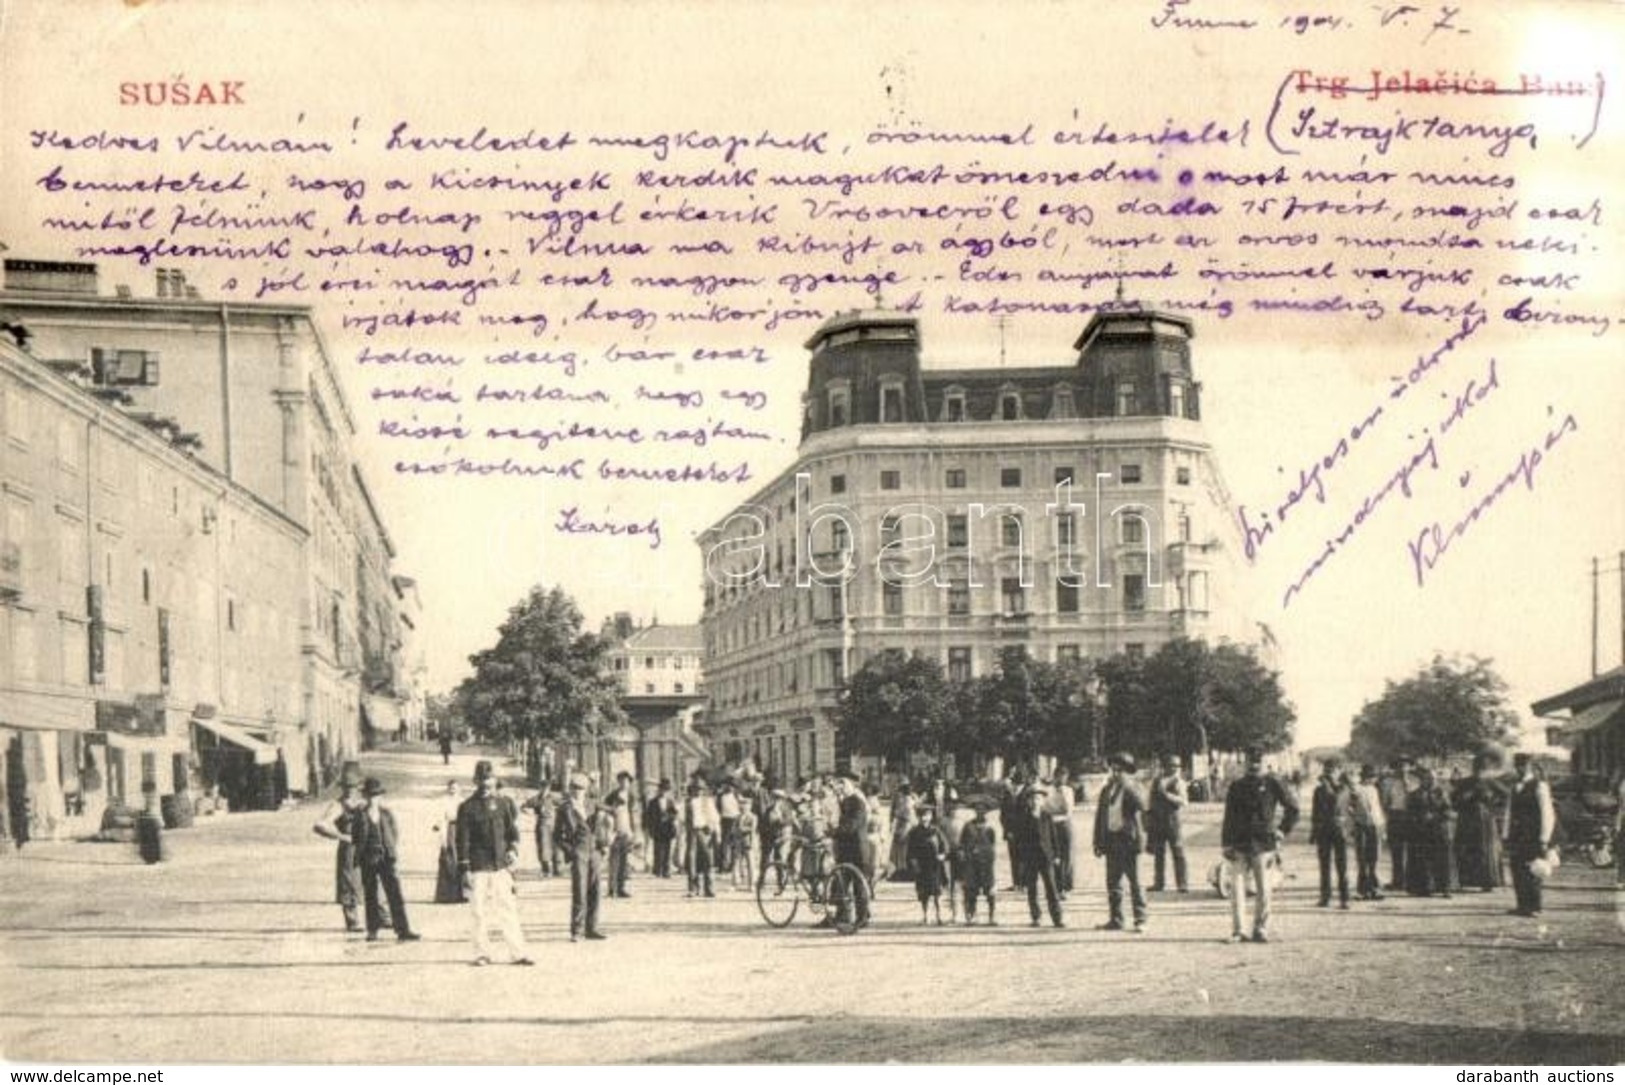 Fiume 1904. V. 7.
SUŠAK
Trg Jelačića Bana
Kedves Vilmám! Leveledet megkaptuk, örömmel értesültek (Sztrájktanya)
benneteket, hogy a kicsinyek kezdik magukat összeszedni s most már nincs
mitől félnünk, holnap reggel érkezik Vrbovecről egy dada 15 frtért, majd csak
meglesünk valahogy.. Vilma ma kibujt az ágyból, mert az orvos mondta neki.
s jól érzi magát csak nagyon gyenge.. Édes anyámat örömmel várjuk, csak
irjátok meg, hogy mikor jön. katonaság még mindig tart, bizony-
talan ideig, bár csak
soká tartana, hogy egy
kissé segitene rajtam.
csókolunk benneteket
Károly
Szivélyesen üdvözöl
mindnyájukat
Klumpás
darabanth
www.delcampe.net
darabanth auctions